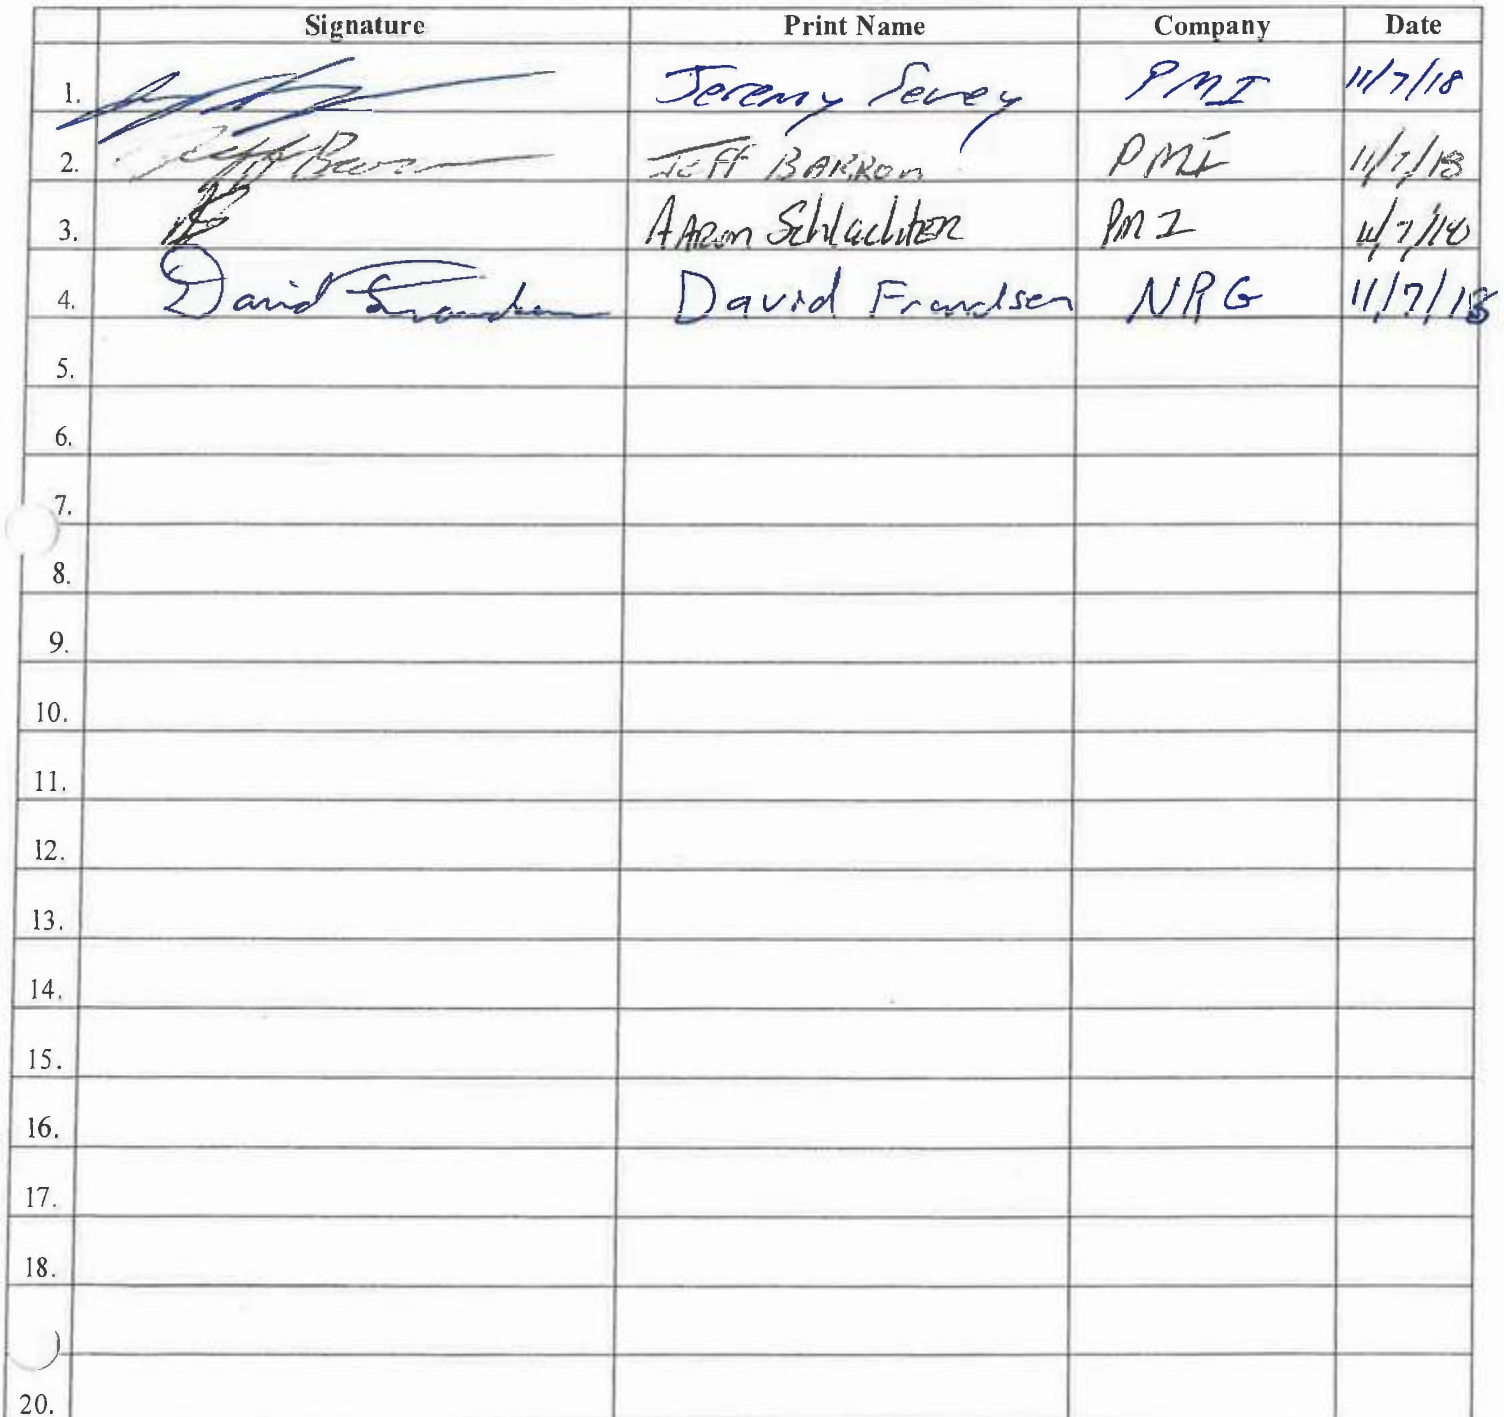 Signature Print Name Company Date
1. Jeremy PMI 11/7/18
2. Jeff Barron Jeff BARRon PMI 11/7/18
3. AARon Schlachter PMI 11/7/18
4. David Frandsen David Frandsen NRG 11/7/18
5.
6.
7.
8.
9.
10.
11.
12.
13.
14.
15.
16.
17.
18.
20.